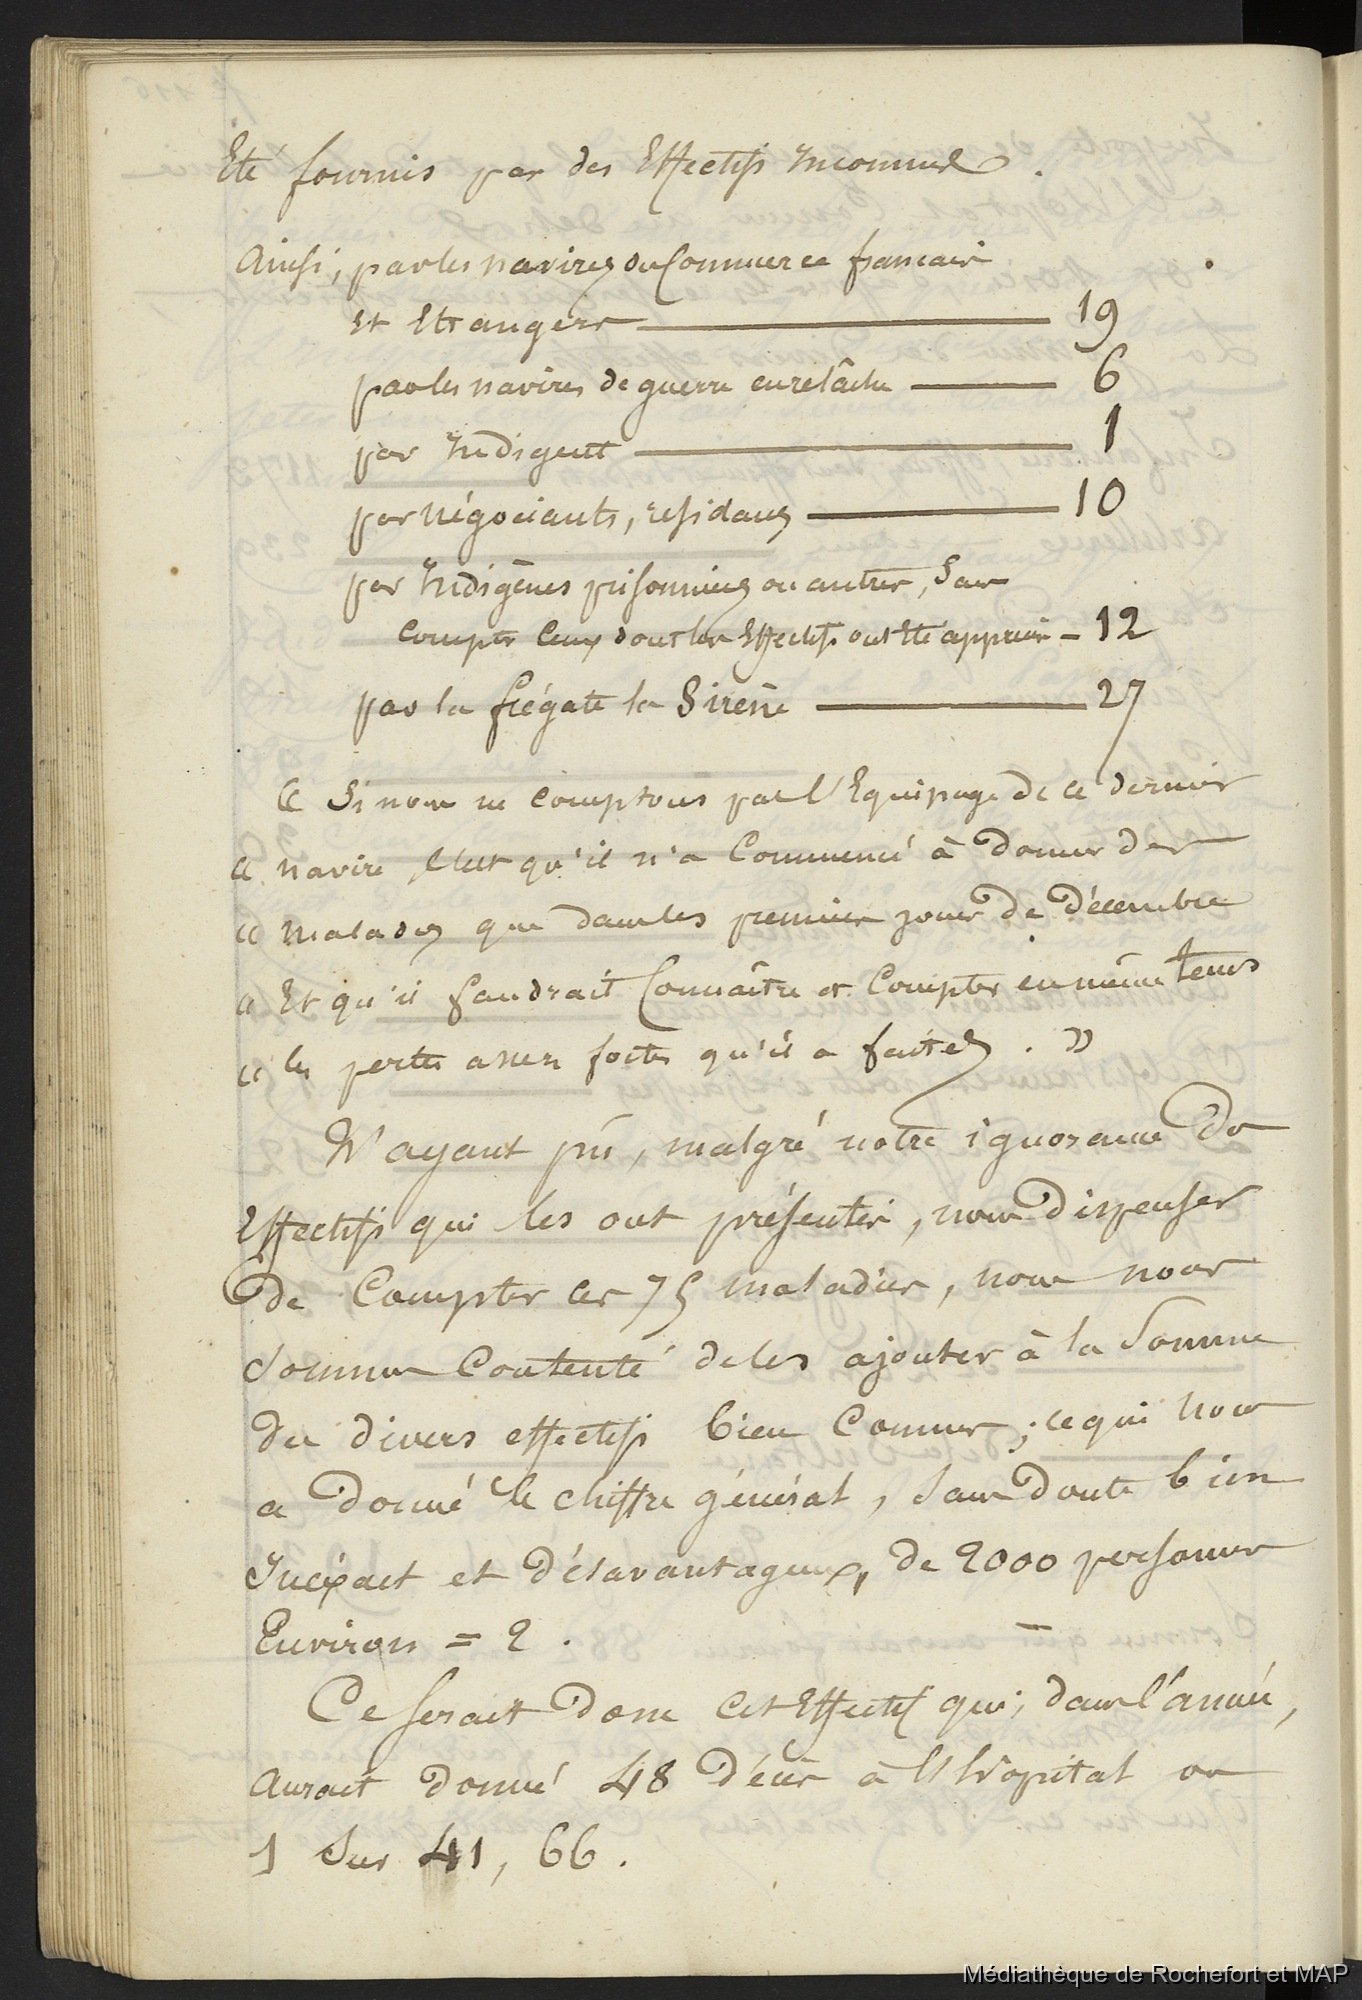 Eté fournis par des Effectifs Inconnus.
Ainsi, par les navires du Commerce français
et Etrangers — 19
par les navires de guerre en relâche — 6
par Indigent — 1
par négociants, résidans — 10
par Indigènes prisonniers ou autres, sans
compter ceux dont les Effectifs ont été appréciés — 12
par la frégate la Sirène — 27
« Si nous ne comptons pas l'Equipage de ce dernier
« navire c'est qu'il n'a Commencé à donner des
« malades que dans les premiers jours de décembre
« Et qu'il faudrait Connaître et Compter en même tems
« les pertes assez fortes qu'il a faites. »
N'ayant pû, malgré notre ignorance des
Effectifs qui les ont présentés, nous dispenser
de Compter ces 75 maladies, nous nous
sommes Contenté de les ajouter à la Somme
des divers effectifs bien Connus; ce qui nous
a donné le chiffre général, sans doute bien
Inéxact et désavantageux, de 2000 personnes
Environ = 2.
Ce serait donc cet Effectif qui, dans l'année,
aurait donné 48 décès à l'hôpital ou
1 Sur 41, 66.
Médiathèque de Rochefort et MAP